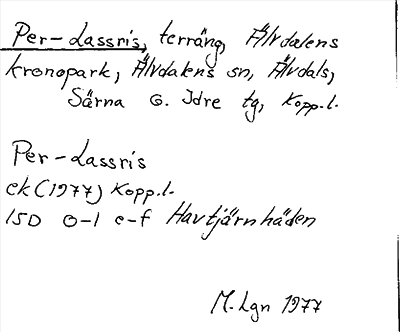 Per-Lassris, terräng, Älvdalens
kronopark, Älvdalens sn, Älvdals,
Särna o. Idre tg, Kopp.l.
Per-Lassris
ek (1977) Kopp.l.
15D 0-1 e-f Havtjärnhäden
M. Lgn 1977